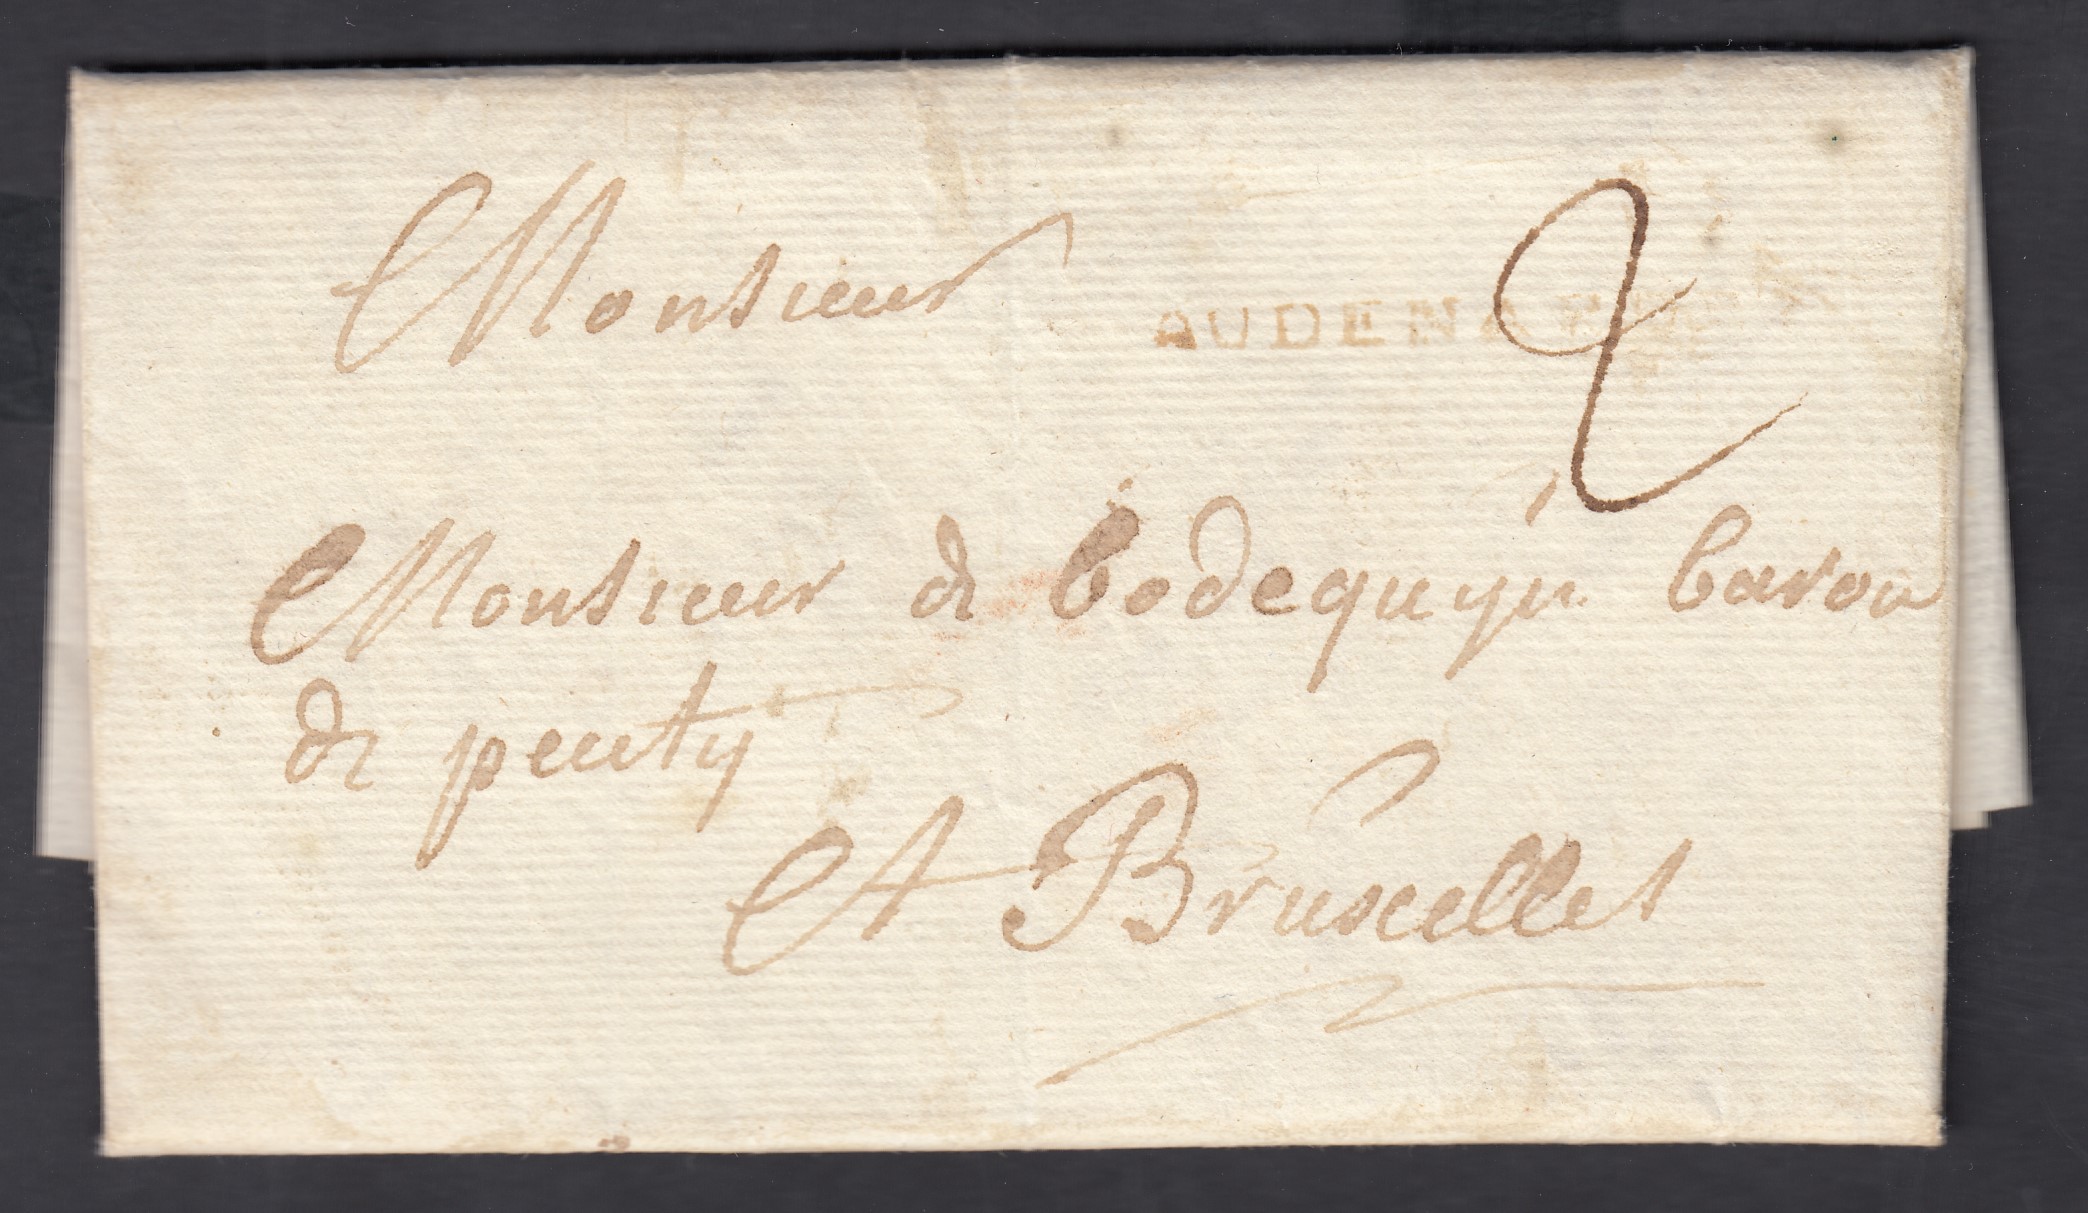 Monsieur
AUDENARDE
2
Monsieur de bodequÿn baron
de peuty
A Bruxelles